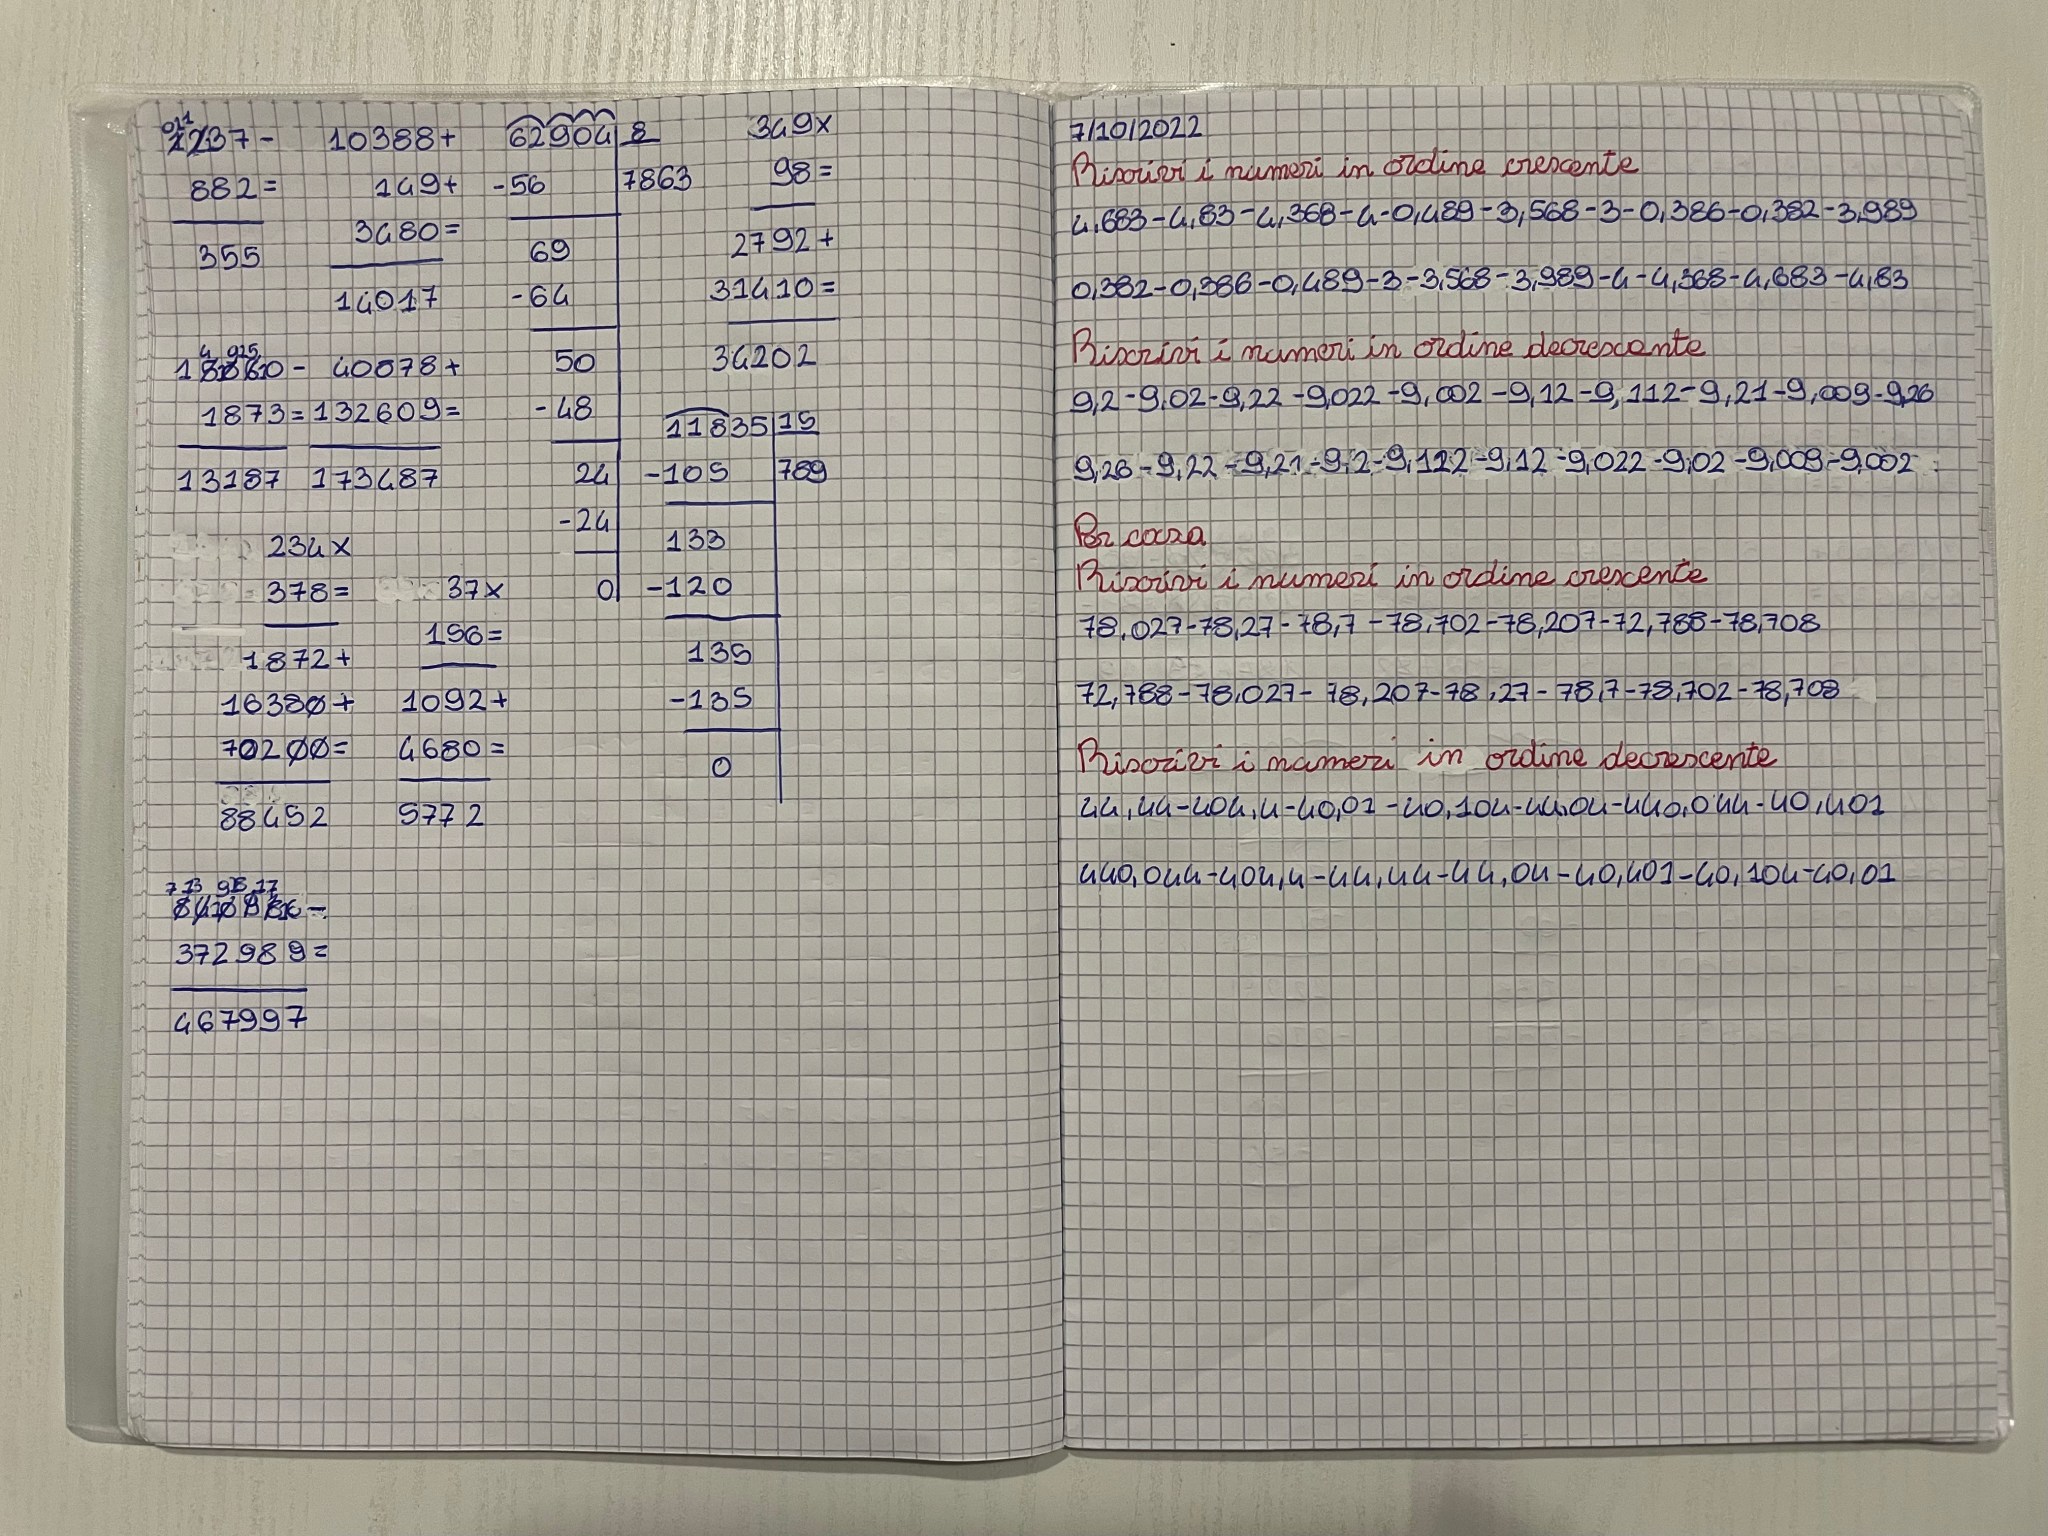 1237- 10388+ 62904 8 349x
882= 149+ -56 7863 98=
3480= 69 2792+
355 14017 -64 31410=
40878+ 50 34202
1873= 132609= -48 11835 15
13187 173487 24 -105 789
234x -24 133
378= 37x 0 -120
156= 135
1872+ 1092+ -135
16380+ 4680= 0
70200= 5772
88452
372989=
467997
7/10/2022
Riscrivi i numeri in ordine crescente
4,683-4,83-4,368-4-0,489-3,568-3-0,386-0,382-3,989
0,382-0,386-0,489-3-3,568-3,989-4-4,368-4,683-4,83
Riscrivi i numeri in ordine decrescente
9,2-9,02-9,22-9,022-9,002-9,12-9,112-9,21-9,009-9,26
9,26-9,22-9,21-9,2-9,122-9,12-9,022-9,02-9,009-9,002
Per casa
Riscrivi i numeri in ordine crescente
78,027-78,27-78,7-78,702-78,207-72,788-78,708
72,788-78,027-78,207-78,27-78,7-78,702-78,708
Riscrivi i numeri in ordine decrescente
44,44-404,4-40,01-40,104-44,04-440,044-40,401
440,044-404,4-44,44-44,04-40,401-40,104-40,01